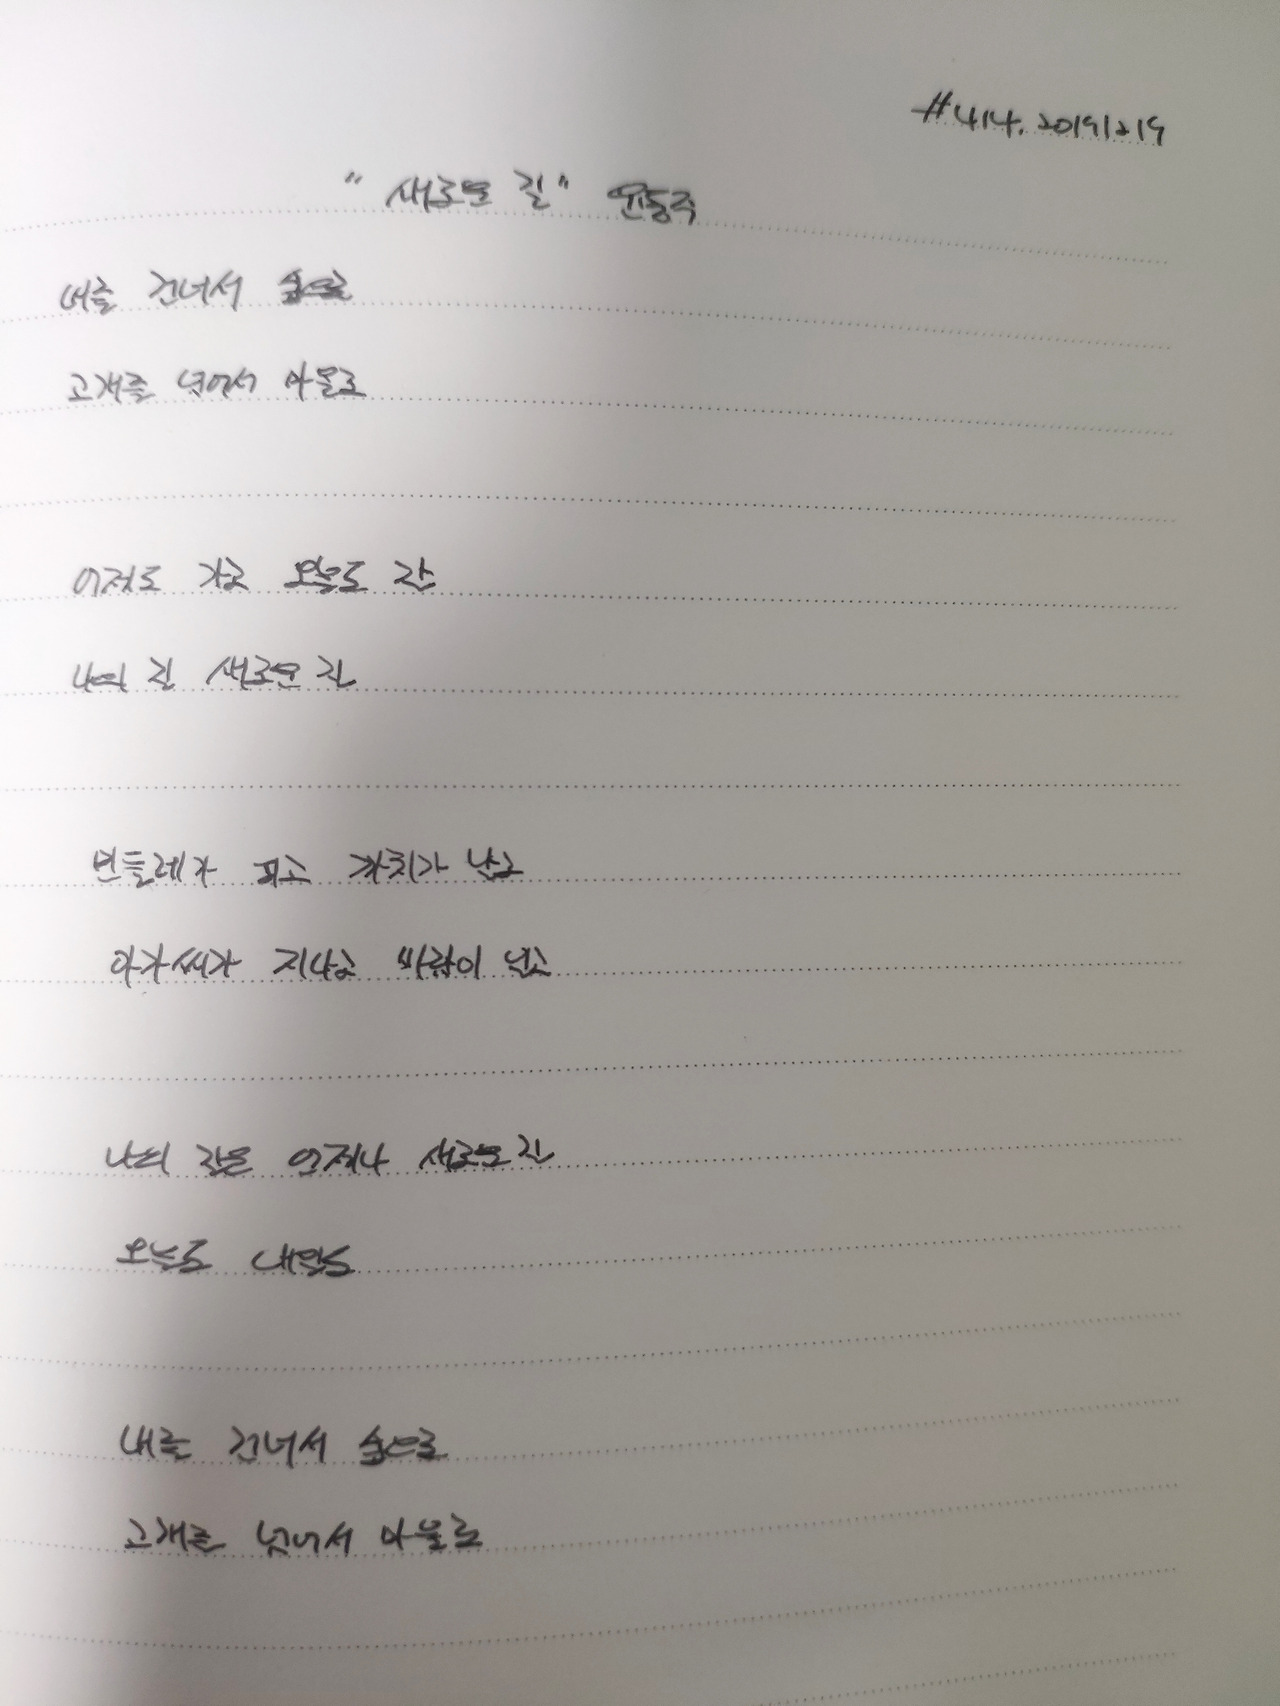 #414. 20191219
"새로운 길" 윤동주
내를 건너서 숲으로
고개를 넘어서 마을로
어제도 가고 오늘도 갈
나의 길 새로운 길
민들레가 피고 까치가 날고
아가씨가 지나고 바람이 일고
나의 길은 언제나 새로운 길
오늘도 내일도
내를 건너서 숲으로
고개를 넘어서 마을로